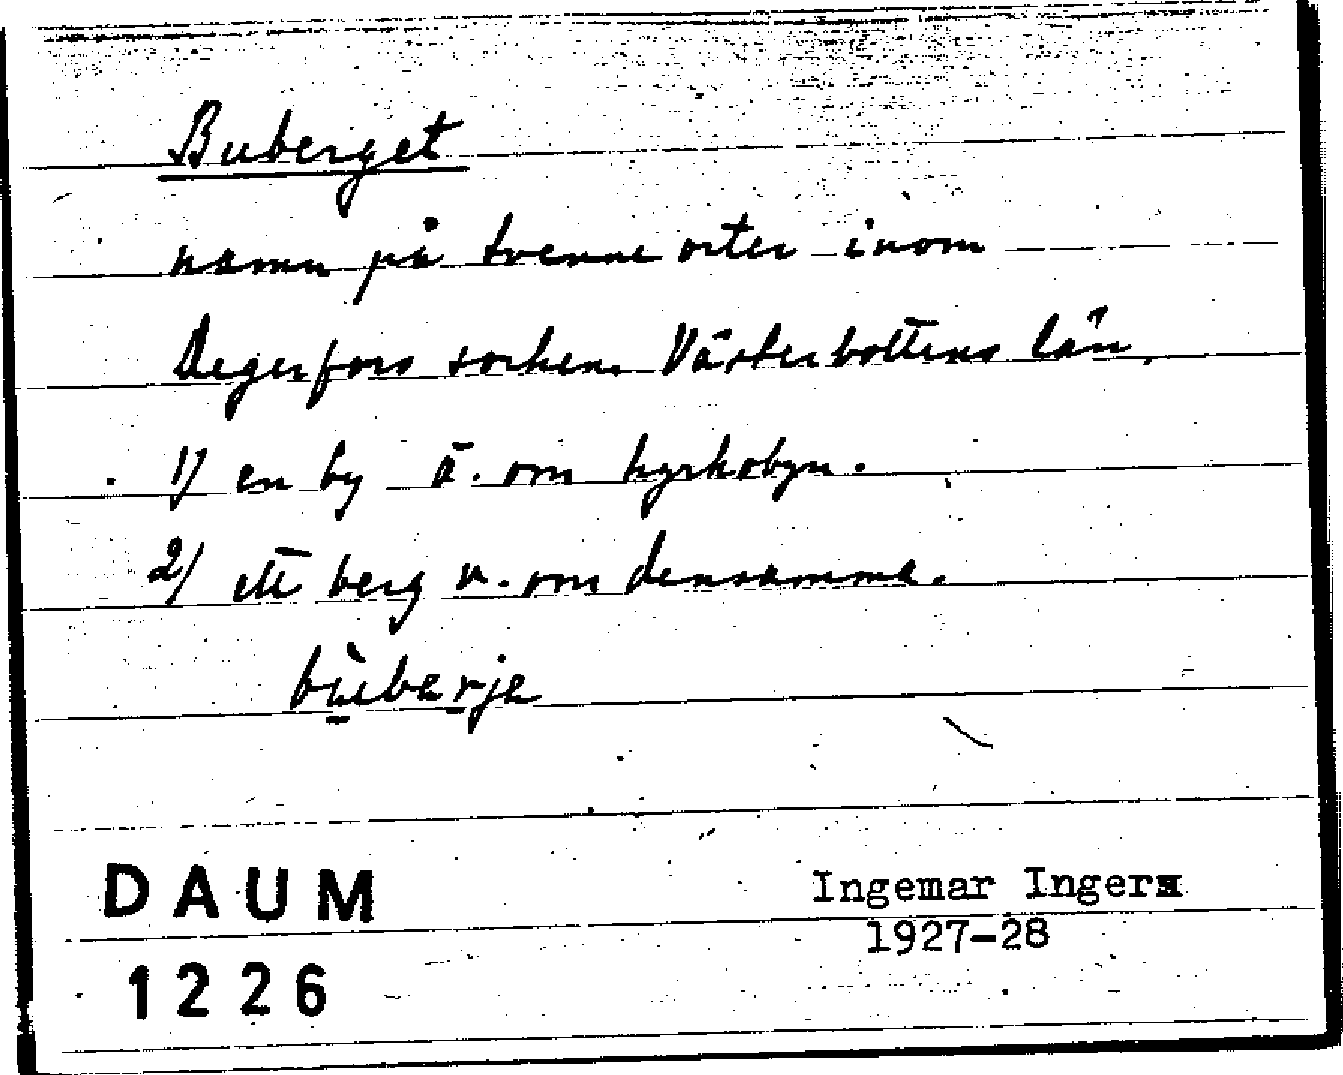 Buberget
namn på tvenne orter inom
Degerfors socken. Västerbottens län.
1) en by ö. om kyrkobyn.
2) ett berg v. om densamma.
bùberje
DAUM
1226
Ingemar Ingers
1927-28